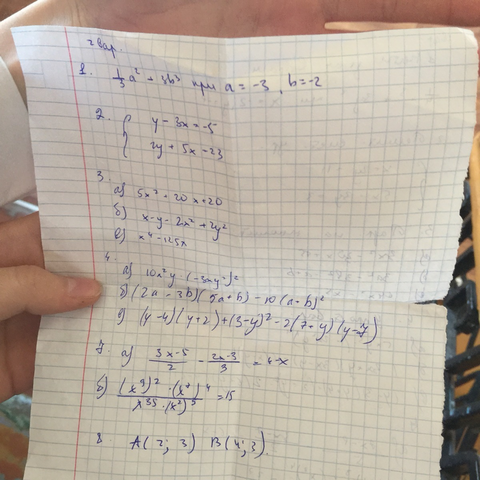 2 вар.
1. 1/3 a² + 3b³ при a = -3, b = -2
2. { y - 3x = -5
{ 2y + 5x = 23
3.
а) 5x² + 20x + 20
б) x - y - 2x² + 2y²
в) x⁴ - 125x
4.
а) 10x²y (-3xy²)²
б) (2a - 3b)(5a + b) - 10(a + b)²
(y - 4)(y + 2) + (3 - y)² - 2(7 + y)(y - 7)
7. а) (3x - 5)/2 - (2x - 3)/3 = 4 - x
б) = 15
8 A(2; 3) B(4; 3).